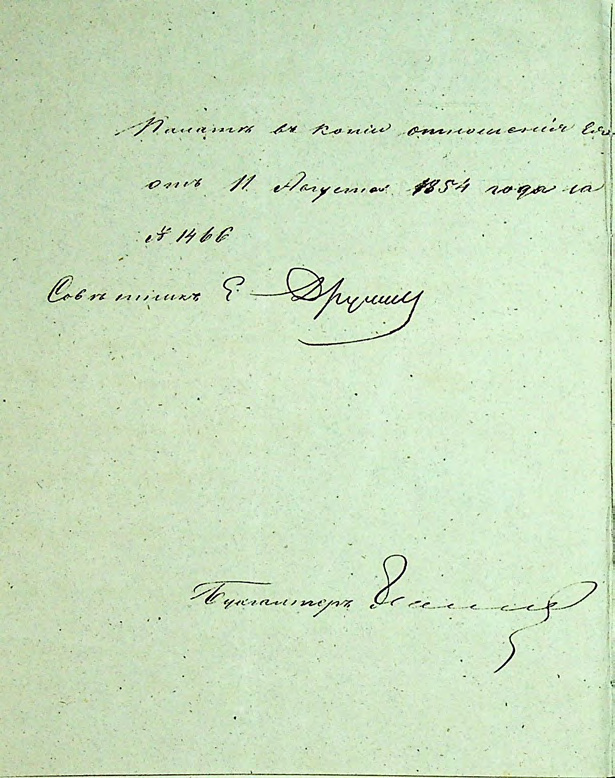 Палатѣ въ копіи отношенія Ея
отъ 11 Августа 1854 года за
№ 1466
Совѣтникъ Е
Бухгалтеръ